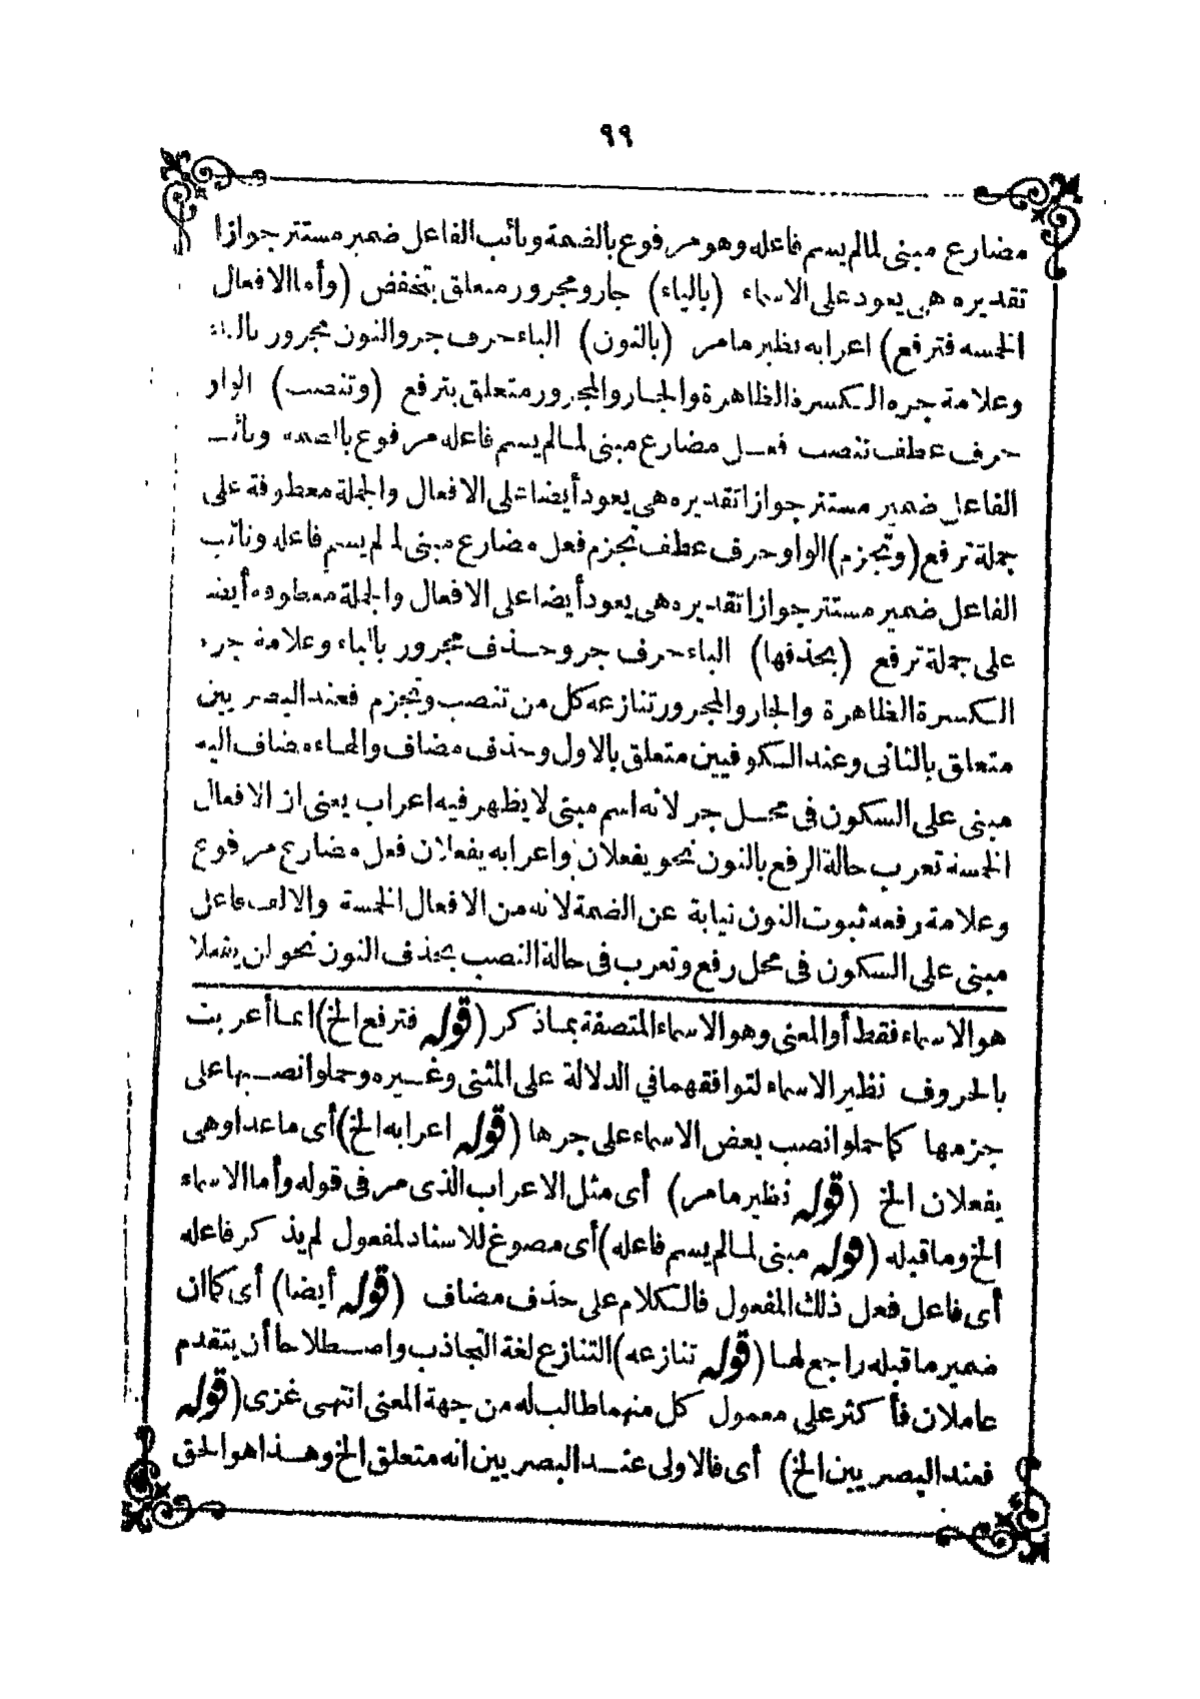 ٩٩
مضارع مبنى لمالم يسم فاعله وهو مرفوع بالضمة ونائب الفاعل ضمير مستتر جوازا
تقديره هى يعود على الاسماء (بالياء) جار ومجرور متعلق بتخفض (وأما الافعال
الخمسه فترفع) اعرابه نظير مامر (بالنون) الباء حرف جر والنون مجرور بالباء
وعلامة جره الكسرة الظاهرة والجار والمجرور متعلق بترفع (وتنصب) الواو
حرف عطف تنصب فعل مضارع مبنى لمالم يسم فاعله مرفوع بالضمة ونائب
الفاعل ضمير مستتر جوازا تقديره هى يعود أيضا على الافعال والجملة معطوفة على
جملة ترفع (وتجزم) الواو حرف عطف تجزم فعل مضارع مبنى لمالم يسم فاعله ونائب
الفاعل ضمير مستتر جوازا تقديره هى يعود أيضا على الافعال والجملة معطوفة أيضا
على جملة ترفع (بحذفها) الباء حرف جر وحذف مجرور بالباء وعلامة جره
الكسرة الظاهرة والجار والمجرور تنازعه كل من تنصب وتجزم فعند البصريين
متعلق بالثانى وعند الكوفيين متعلق بالاول وحذف مضاف والهاء مضاف اليه
مبنى على السكون فى محل جر لانه اسم مبنى لا يظهر فيه اعراب يعنى ان الافعال
الخمسة تعرب حالة الرفع بالنون نحو يفعلان واعرابه يفعلان فعل مضارع مرفوع
وعلامة رفعه ثبوت النون نيابة عن الضمة لانه من الافعال الخمسة والالف فاعل
مبنى على السكون فى محل رفع وتعرب فى حالة النصب بحذف النون نحو ان يفعلا
هو الاسماء فقط أو المعنى وهو الاسماء المتصفة بماذكر (قوله فترفع الخ) انما أعربت
بالحروف نظير الاسماء لتوافقهما فى الدلالة على المثنى وغيره وحملوا نصبها على
جزمها كما حملوا نصب بعض الاسماء على جرها (قوله اعرابه الخ) أى ماعدا وهى
يفعلان الخ (قوله نظير مامر) أى مثل الاعراب الذى مر فى قوله وأما الاسماء
الخ وما قبله (قوله مبنى لمالم يسم فاعله) أى مصوغ للاسناد لمفعول لم يذكر فاعله
أى فاعل فعل ذلك المفعول فالكلام على حذف مضاف (قوله أيضا) أى كما ان
ضمير ما قبله راجع لها (قوله تنازعه) التنازع لغة التجاذب واصطلاحا أن يتقدم
عاملان فأكثر على معمول كل منهما طالب له من جهة المعنى انتهى غزى (قوله
فعند البصريين الخ) أى فالاولى عند البصريين انه متعلق الخ وهذا هو الحق